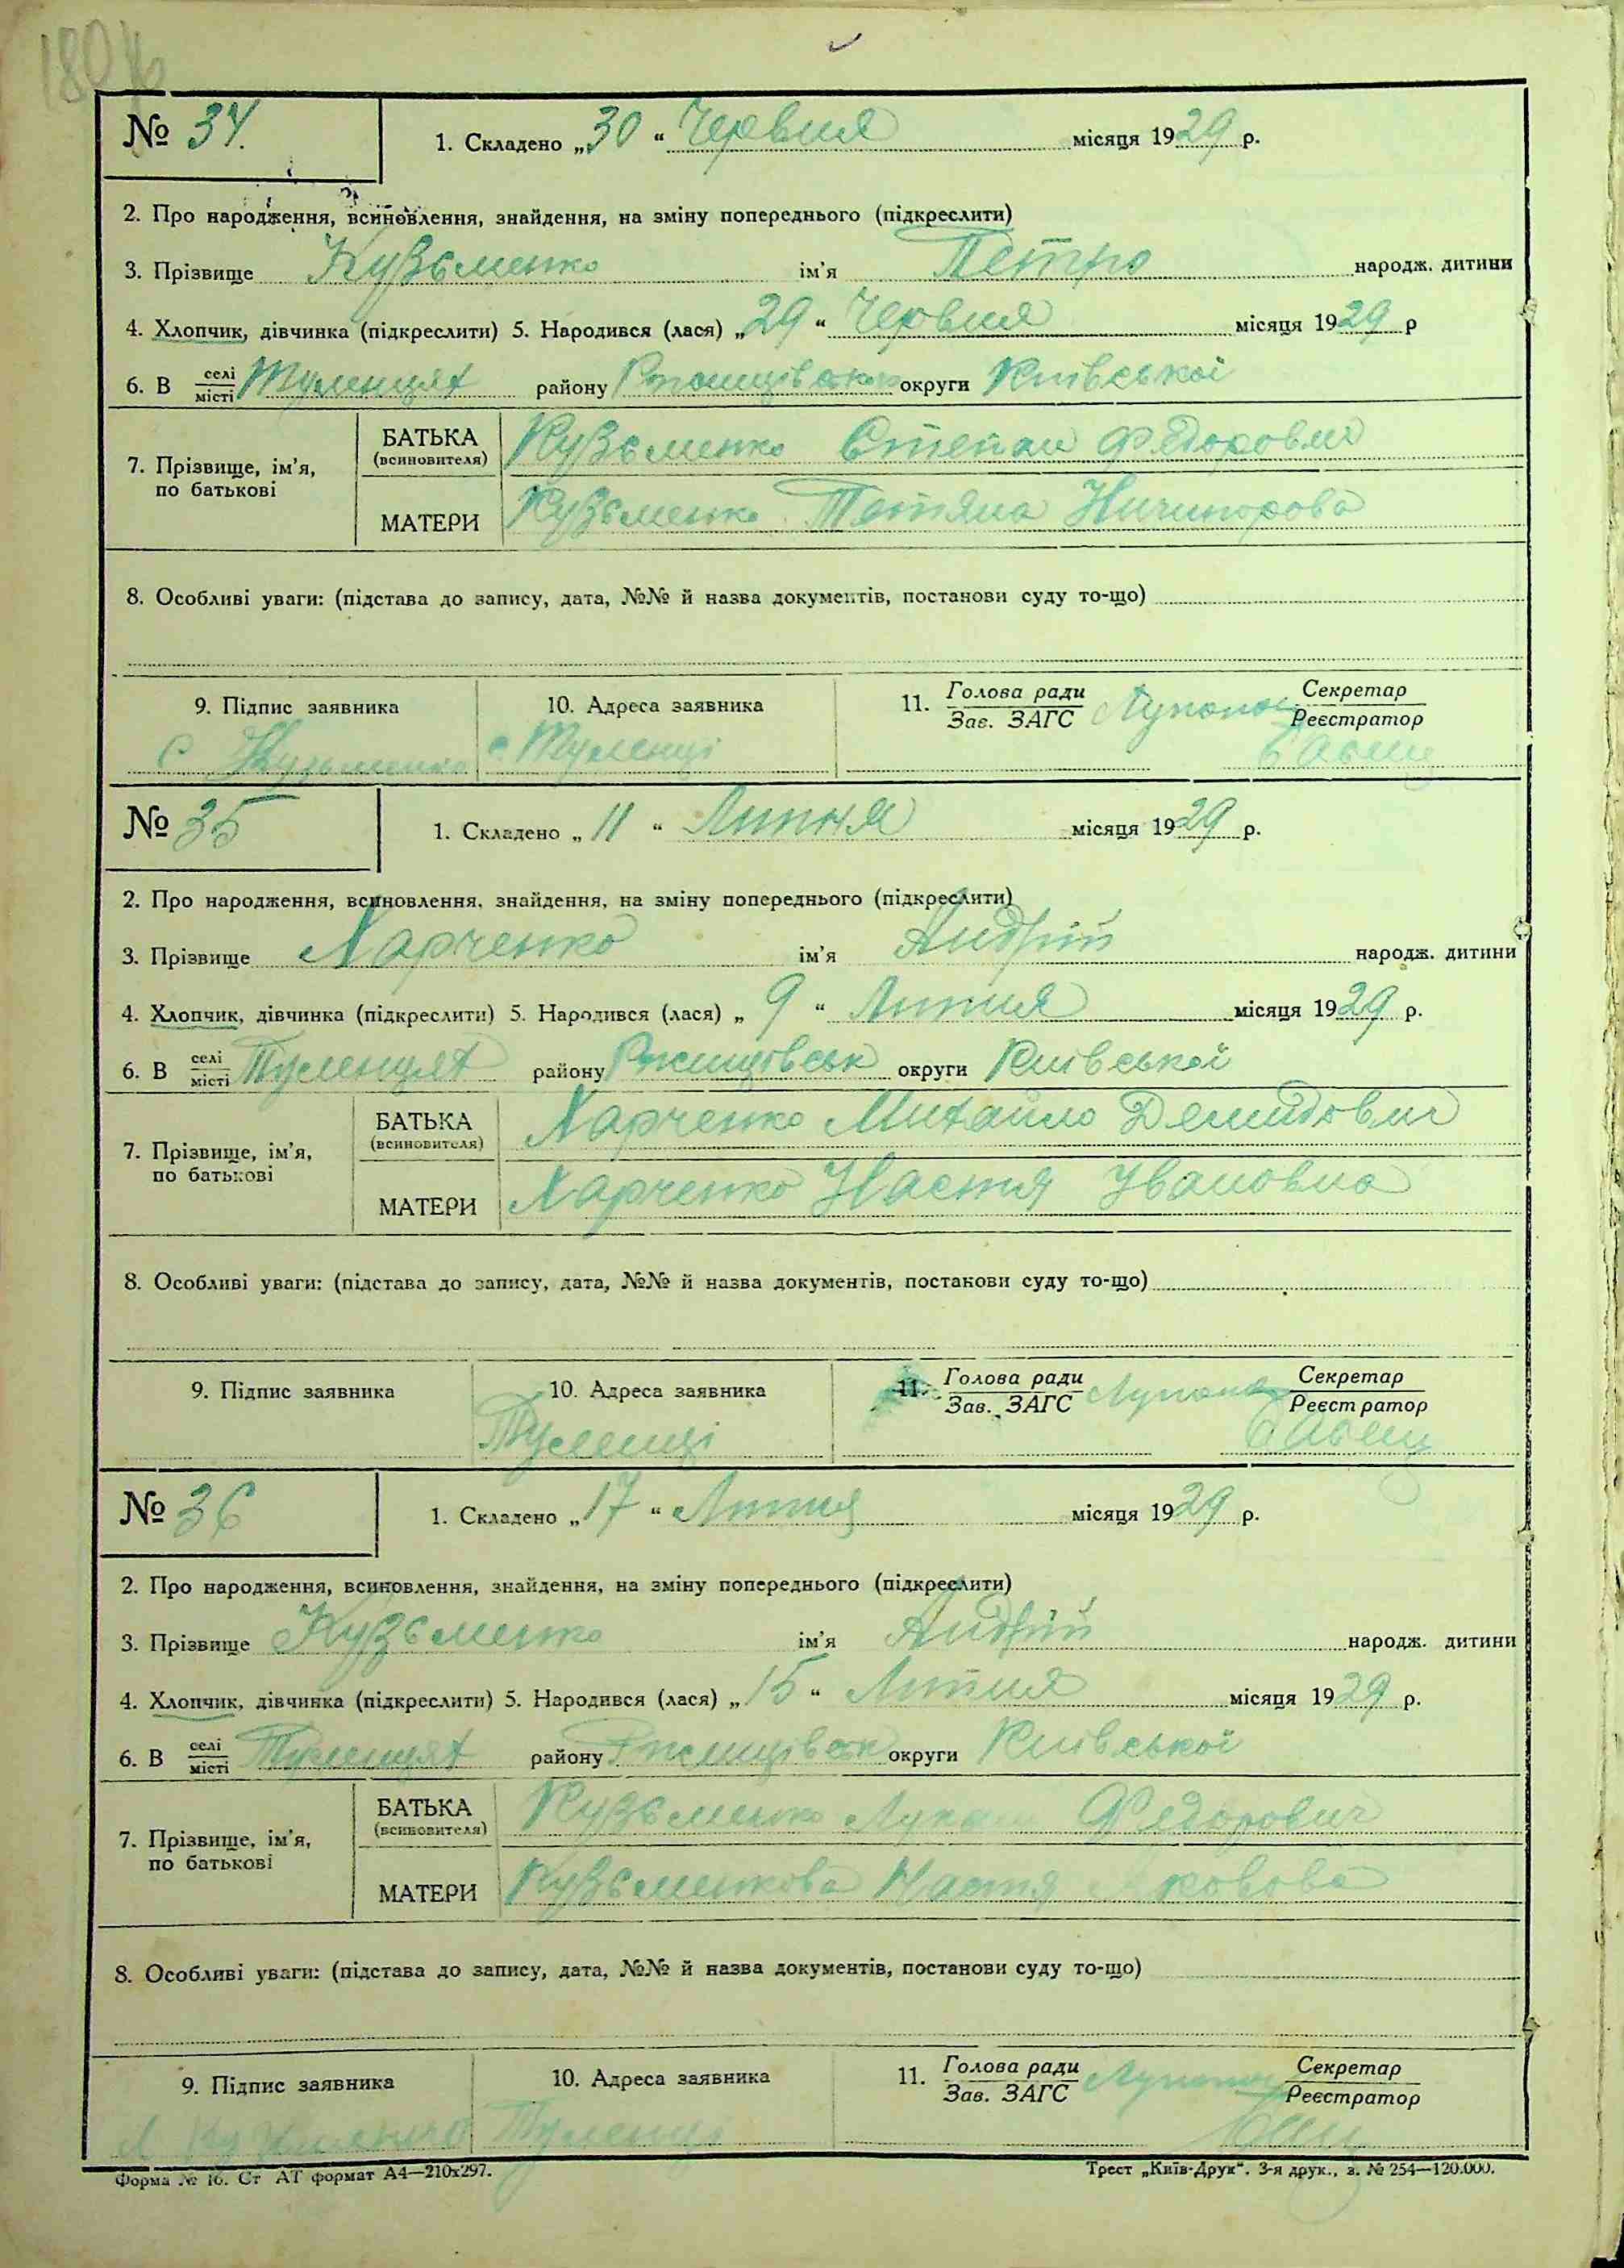 № 34. 1. Складено „30“ Червня місяця 1929 р.
2. Про народження, всиновлення, знайдення, на зміну попереднього (підкреслити)
3. Прізвище Кузьменко ім'я Петро народж. дитини
4. Хлопчик, дівчинка (підкреслити) 5. Народився (лася) „29“ Червня місяця 1929 р
6. В селі місті Тулинцях району округи Київської
7. Прізвище, ім'я, по батькові
БАТЬКА (всиновителя) Кузьменко Степан Федорович
МАТЕРИ Кузьменко Тетяна Ничипорова
8. Особливі уваги: (підстава до запису, дата, №№ й назва документів, постанови суду то-що)
9. Підпис заявника 10. Адреса заявника 11. Голова ради Зав. ЗАГС Секретар Реєстратор
С Кузьменко с Тулинці
№ 35 1. Складено „11“ Липня місяця 1929 р.
2. Про народження, всиновлення, знайдення, на зміну попереднього (підкреслити)
3. Прізвище Харченко ім'я Андрій народж. дитини
4. Хлопчик, дівчинка (підкреслити) 5. Народився (лася) „9“ Липня місяця 1929 р.
6. В селі місті Тулинцях району Ржищівськ округи Київської
7. Прізвище, ім'я, по батькові
БАТЬКА (всиновителя) Харченко Михайло Демидович
МАТЕРИ Харченко Настя Ивановна
8. Особливі уваги: (підстава до запису, дата, №№ й назва документів, постанови суду то-що)
9. Підпис заявника 10. Адреса заявника 11. Голова ради Зав. ЗАГС Секретар Реєстратор
Тулинці
№ 36 1. Складено „17“ Липня місяця 1929 р.
2. Про народження, всиновлення, знайдення, на зміну попереднього (підкреслити)
3. Прізвище Кузьменко ім'я Андрій народж. дитини
4. Хлопчик, дівчинка (підкреслити) 5. Народився (лася) „15“ Липня місяця 1929 р.
6. В селі місті Тулинцях району Ржищівськ округи Київської
7. Прізвище, ім'я, по батькові
БАТЬКА (всиновителя) Кузьменко Лука Федорович
МАТЕРИ Кузьменкова Настя
8. Особливі уваги: (підстава до запису, дата, №№ й назва документів, постанови суду то-що)
9. Підпис заявника 10. Адреса заявника 11. Голова ради Зав. ЗАГС Секретар Реєстратор
Л Кузьменко Тулинці
Форма № 16. Ст АТ формат А4—210х297. Трест „Київ-Друк“. 3-я друк., з. № 254—120.000.